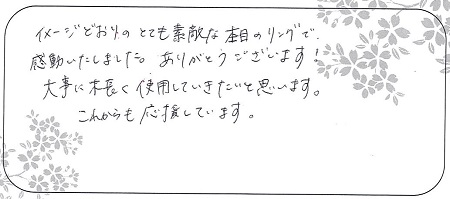 イメージどおりの とても素敵な 杢目のリングで、
感動いたしました。ありがとうございます!
大事に 末長く 使用していきたいと思います。
これからも 応援しています。